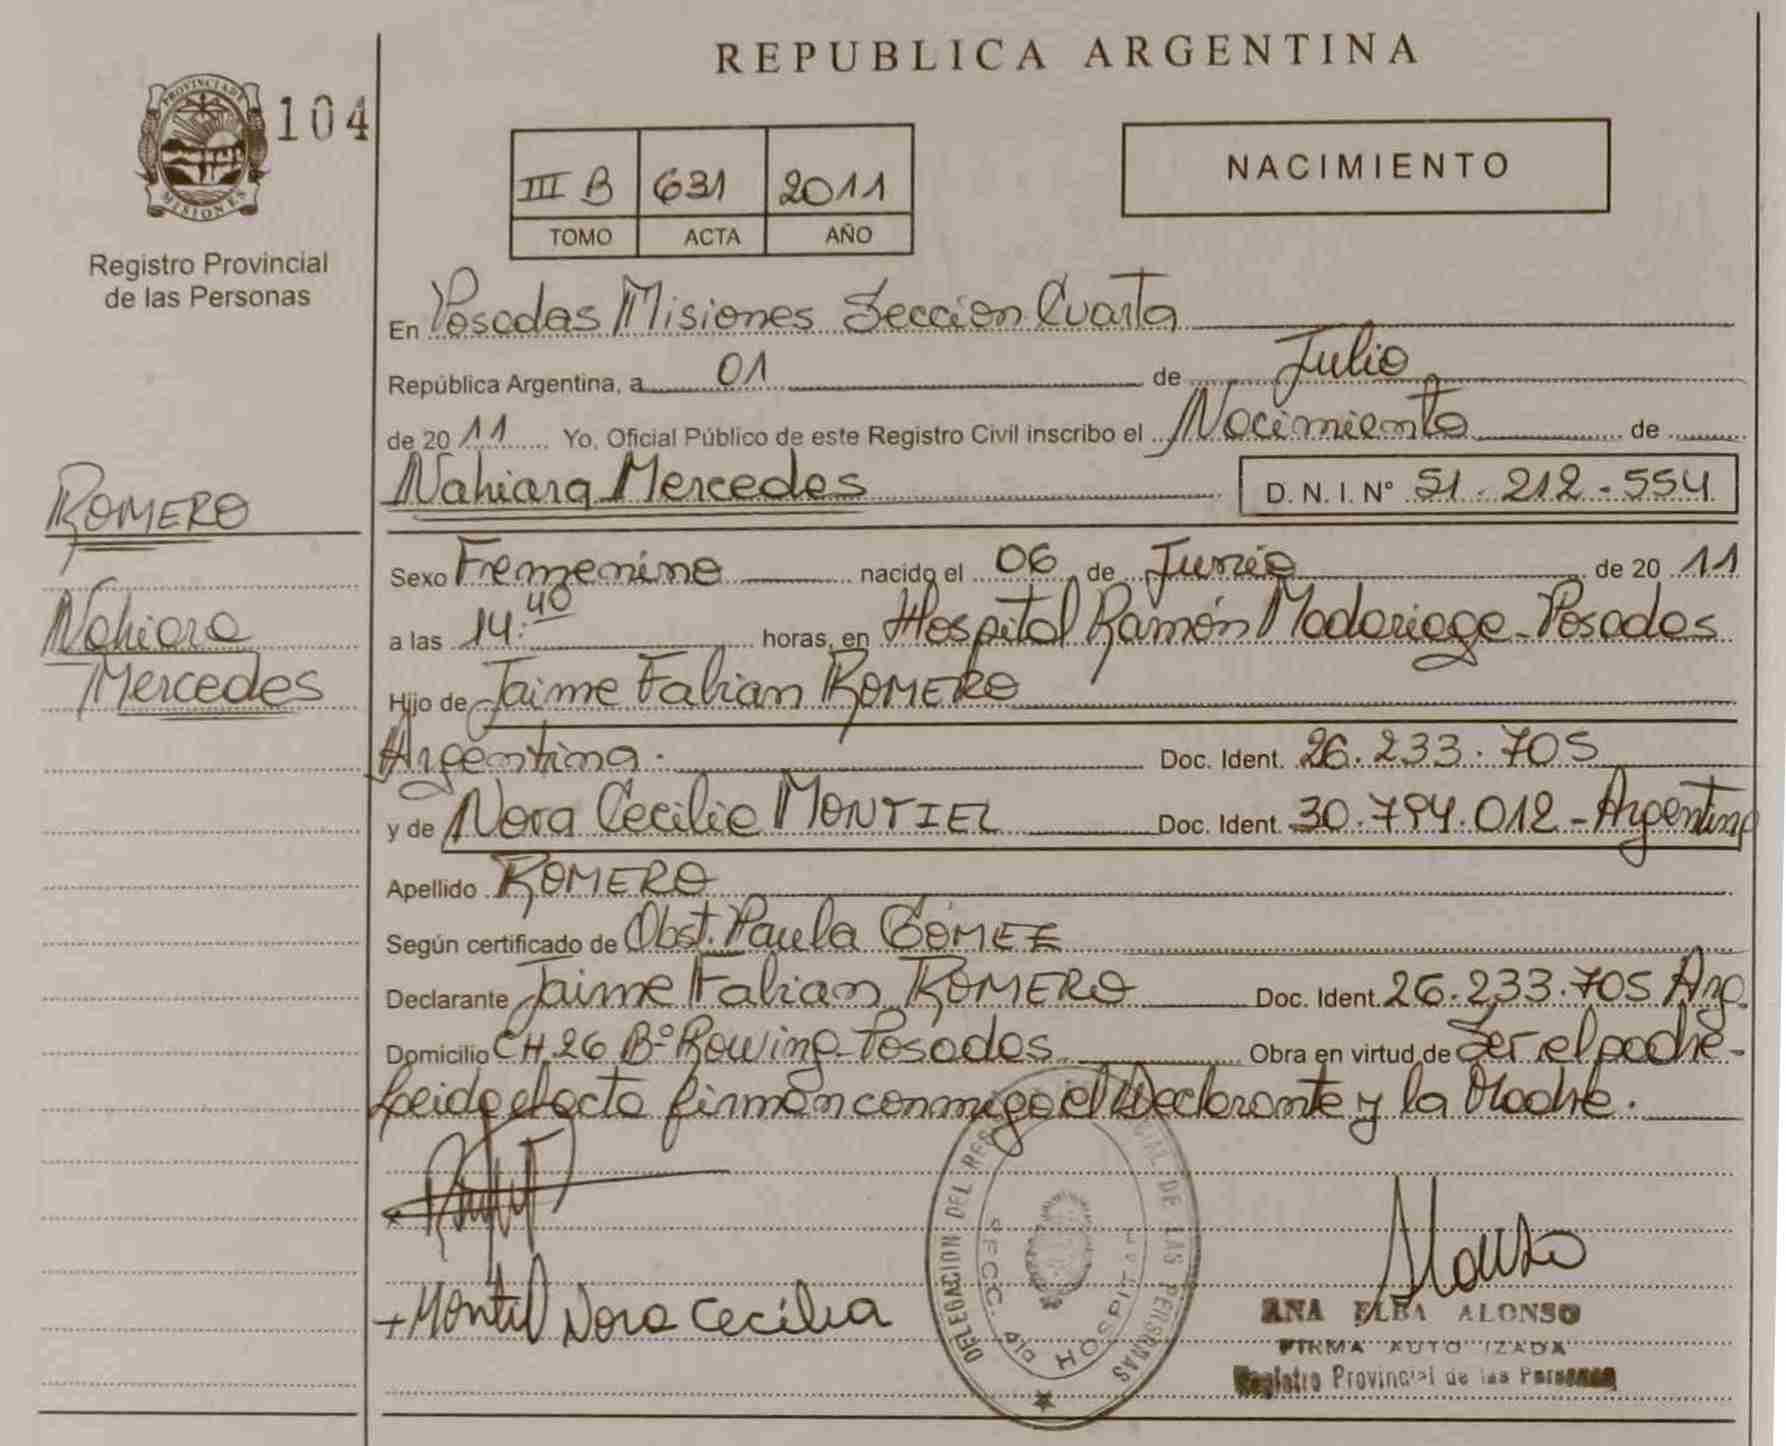 REPUBLICA ARGENTINA
PROVINCIA DE MISIONES
104
Registro Provincial
de las Personas
III B 631 2011
TOMO ACTA AÑO
NACIMIENTO
En Posadas Misiones Sección Cuarta
República Argentina, a 01 de Julio
de 2011 Yo, Oficial Público de este Registro Civil inscribo el Nacimiento de
Nahiara Mercedes D. N. I. Nº 51.212.554
ROMERO
Nahiara
Mercedes
Sexo Femenino nacido el 06 de Junio de 2011
a las 14:40 horas, en Hospital Ramón Madariaga - Posadas
Hijo de Jaime Fabian ROMERO
Argentina. Doc. Ident. 26.233.705
y de Nora Cecilia MONTIEL Doc. Ident. 30.794.012 - Argentina
Apellido ROMERO
Según certificado de Obst. Paula GÓMEZ
Declarante Jaime Fabian ROMERO Doc. Ident. 26.233.705 Arg.
Domicilio CH.26 Bº Rowing - Posadas Obra en virtud de Ser el padre -
Leido el acta firman conmigo el Declarante y la Madre.
+ Montiel Nora Cecilia
DELEGACION DEL REGISTRO PROVINCIAL DE LAS PERSONAS
SECC. 4ta HOSPITAL
Alonso
ANA ELBA ALONSO
FIRMA AUTORIZADA
Registro Provincial de las Personas